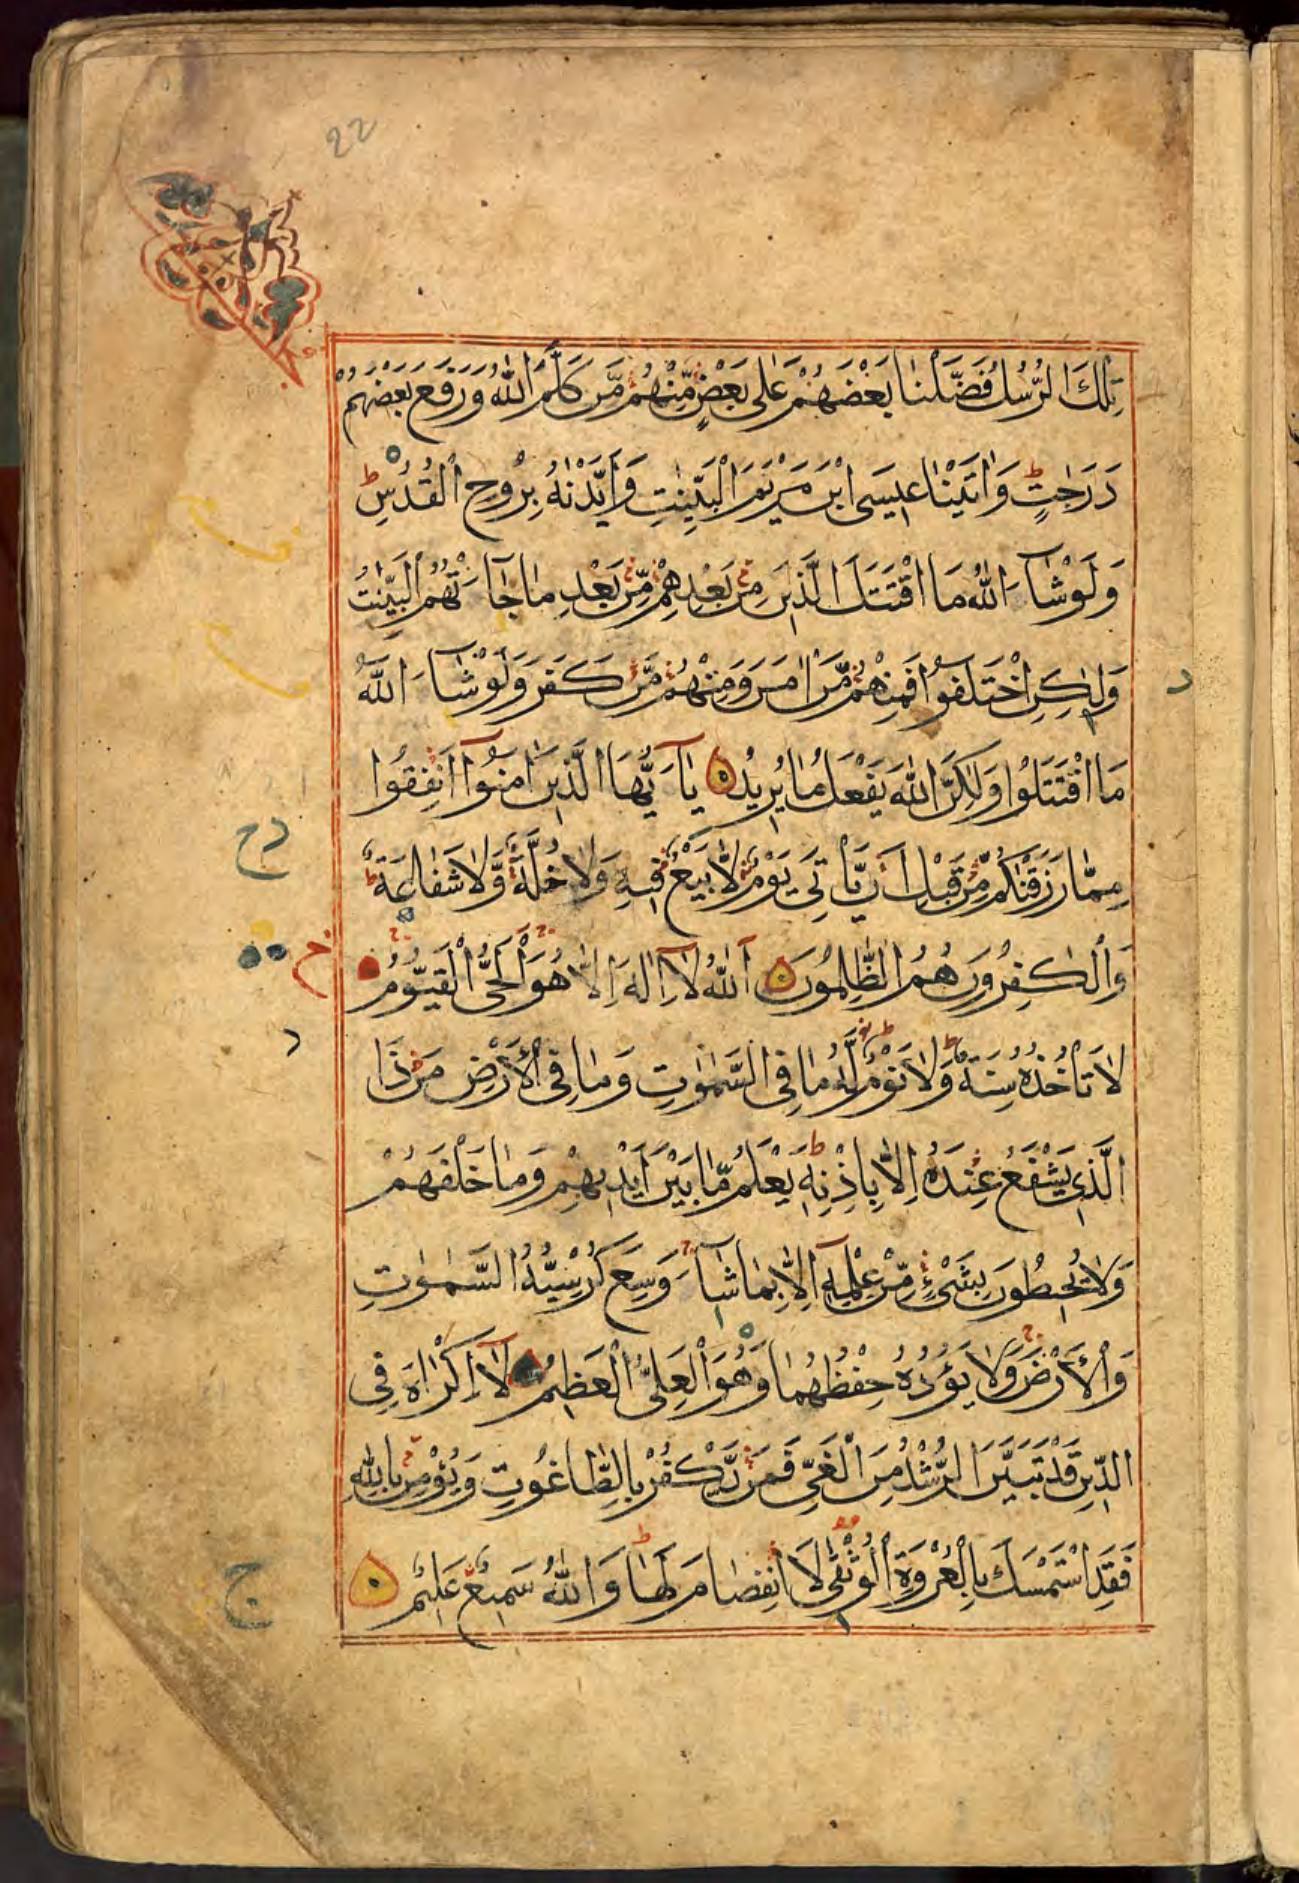 22
تِلْكَ الرُّسُلُ فَضَّلْنَا بَعْضَهُمْ عَلٰى بَعْضٍ مِّنْهُمْ مَّن كَلَّمَ اللّٰهُ وَرَفَعَ بَعْضَهُمْ
دَرَجٰتٍ ط وَاٰتَيْنَا عِيسَى ابْنَ مَرْيَمَ الْبَيِّنٰتِ وَاَيَّدْنٰهُ بِرُوحِ الْقُدُسِ ط
وَلَوْ شَآءَ اللّٰهُ مَا اقْتَتَلَ الَّذِينَ مِنْ بَعْدِهِمْ مِّنْ بَعْدِ مَا جَآءَتْهُمُ الْبَيِّنٰتُ
وَلٰكِنِ اخْتَلَفُوا فَمِنْهُمْ مَّنْ اٰمَنَ وَمِنْهُمْ مَّنْ كَفَرَ وَلَوْ شَآءَ اللّٰهُ
مَا اقْتَتَلُوا وَلٰكِنَّ اللّٰهَ يَفْعَلُ مَا يُرِيدُ يَآ اَيُّهَا الَّذِينَ اٰمَنُوٓا اَنْفِقُوا
مِمَّا رَزَقْنٰكُمْ مِّنْ قَبْلِ اَنْ يَّاْتِيَ يَوْمٌ لَّا بَيْعٌ فِيهِ وَلَا خُلَّةٌ وَّلَا شَفَاعَةٌ ط
وَالْكٰفِرُونَ هُمُ الظّٰلِمُونَ اَللّٰهُ لَآ اِلٰهَ اِلَّا هُوَ الْحَيُّ الْقَيُّومُ
لَا تَاْخُذُهُ سِنَةٌ وَّلَا نَوْمٌ ط لَهُ مَا فِي السَّمٰوٰتِ وَمَا فِي الْاَرْضِ مَنْ ذَا
الَّذِي يَشْفَعُ عِنْدَهُ اِلَّا بِاِذْنِهِ ط يَعْلَمُ مَا بَيْنَ اَيْدِيهِمْ وَمَا خَلْفَهُمْ
وَلَا يُحِيطُونَ بِشَيْءٍ مِّنْ عِلْمِهِٓ اِلَّا بِمَا شَآءَ وَسِعَ كُرْسِيُّهُ السَّمٰوٰتِ
وَالْاَرْضَ وَلَا يَؤُدُهُ حِفْظُهُمَا وَهُوَ الْعَلِيُّ الْعَظِيمُ لَآ اِكْرَاهَ فِي
الدِّينِ قَدْ تَبَيَّنَ الرُّشْدُ مِنَ الْغَيِّ فَمَنْ يَّكْفُرْ بِالطَّاغُوتِ وَيُؤْمِنْ بِاللّٰهِ
فَقَدِ اسْتَمْسَكَ بِالْعُرْوَةِ الْوُثْقٰى لَا انْفِصَامَ لَهَا ط وَاللّٰهُ سَمِيعٌ عَلِيمٌ